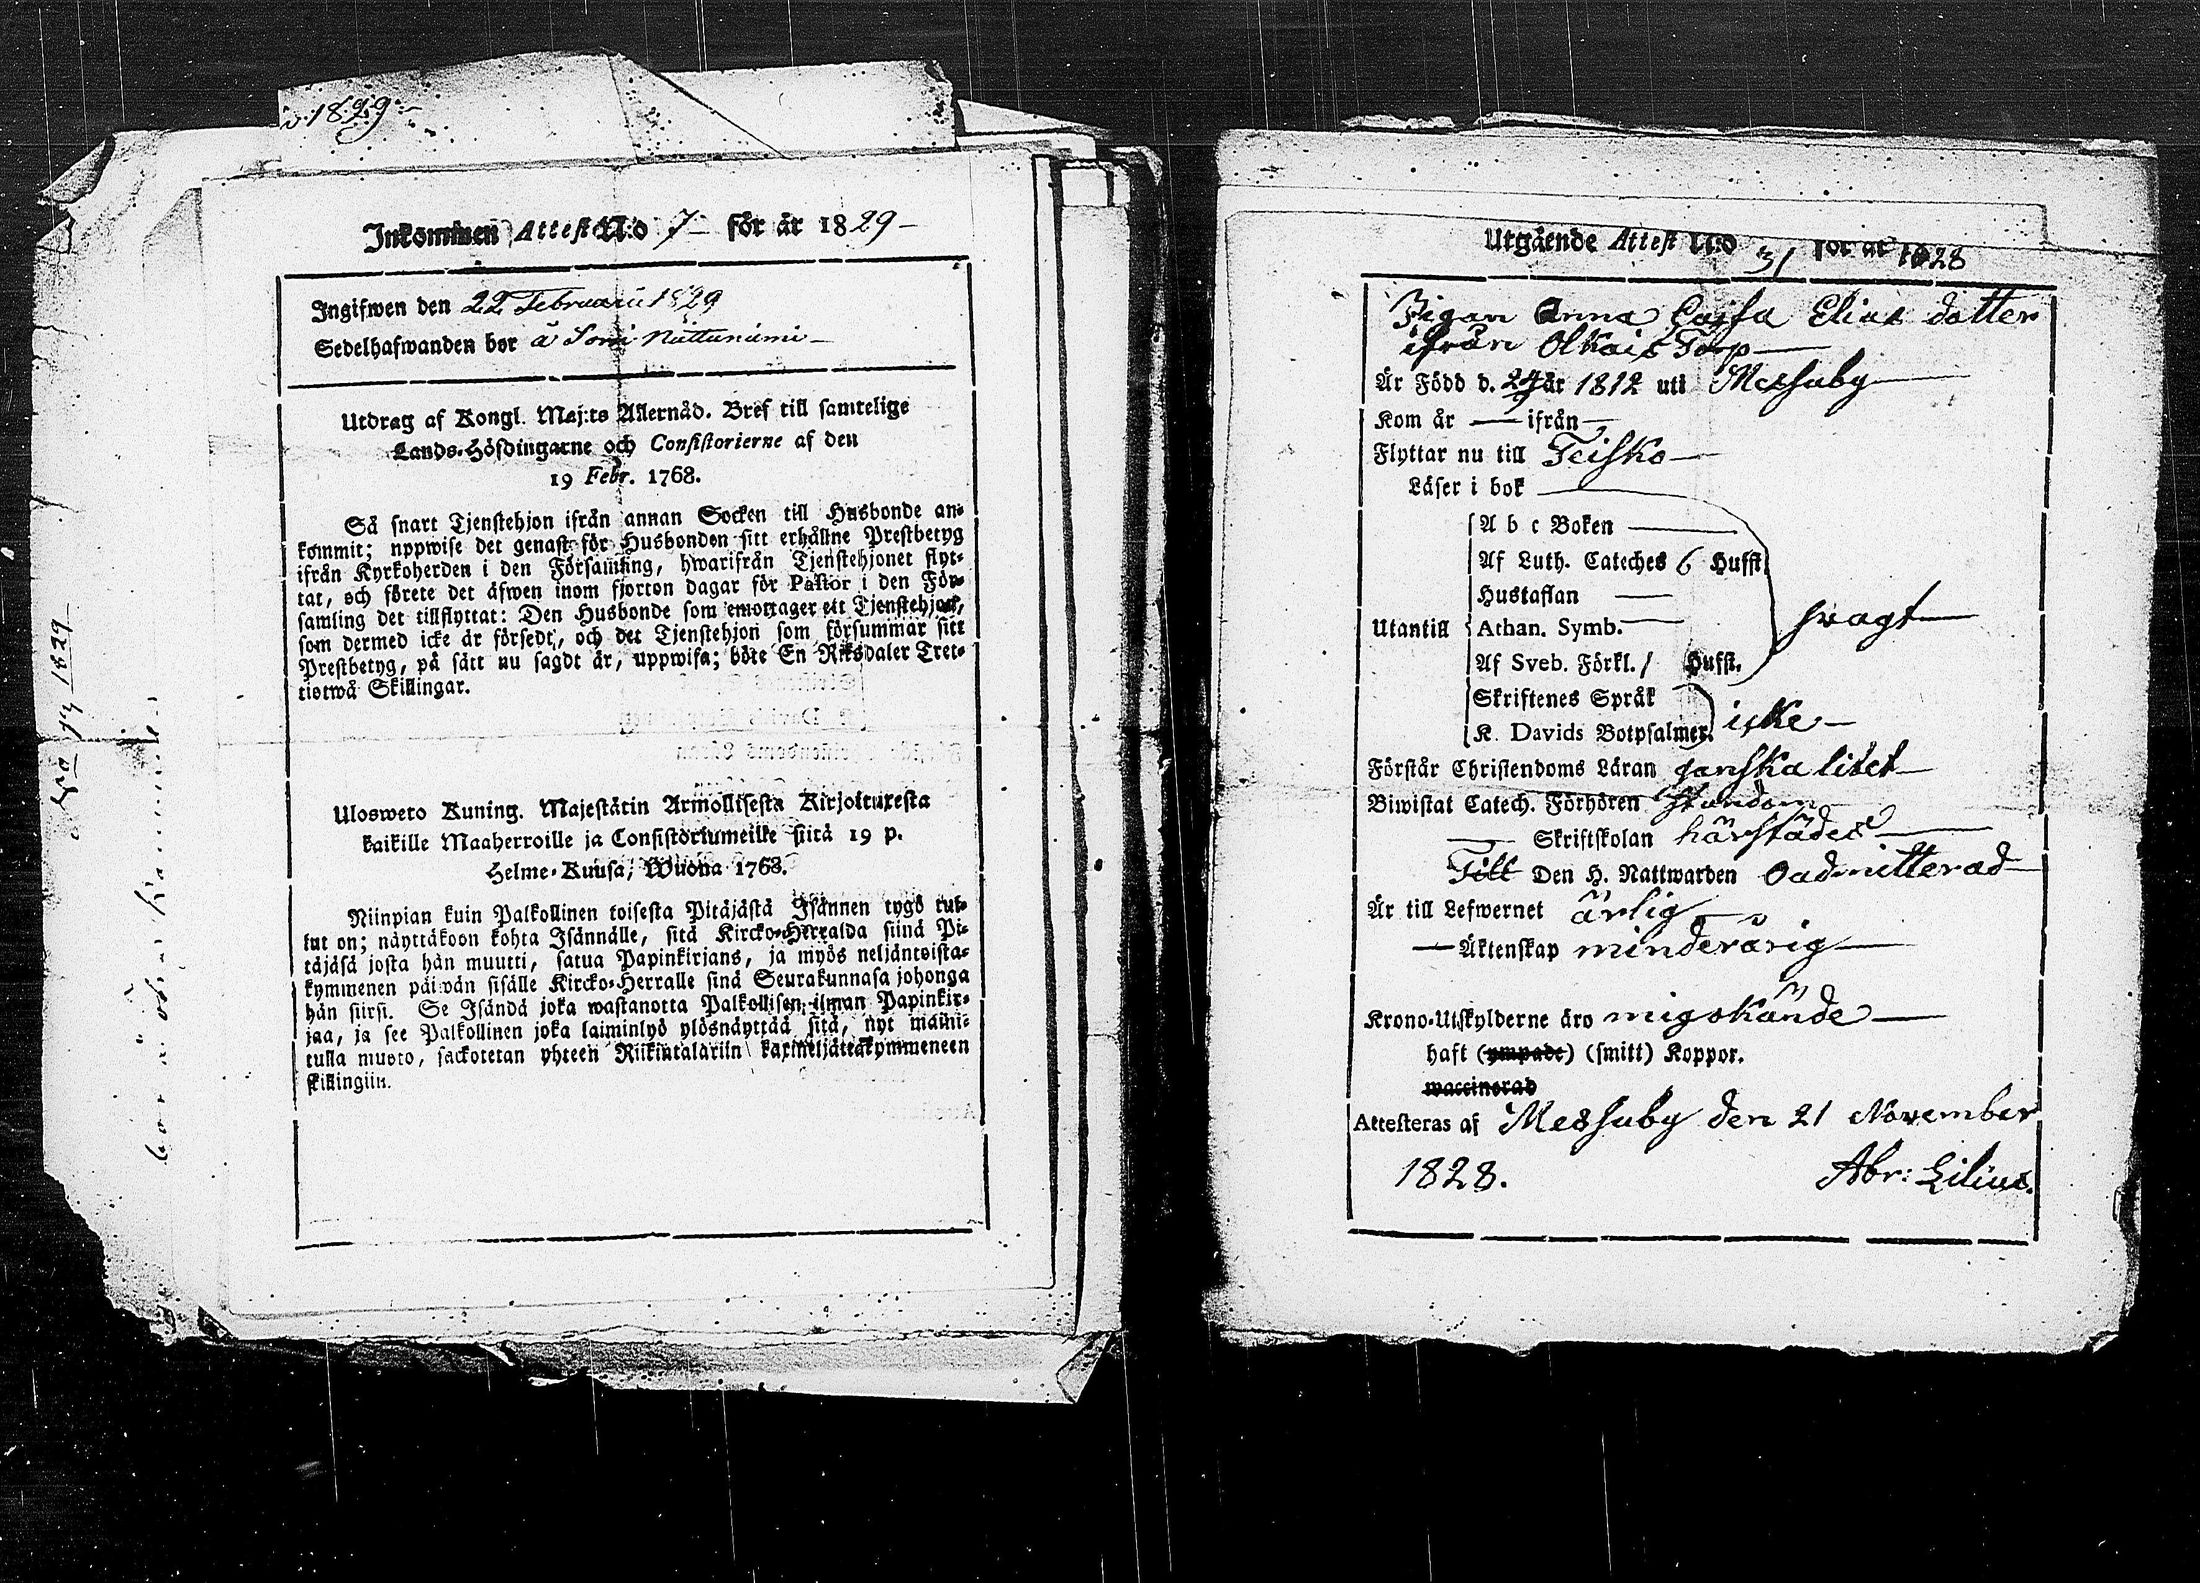 1829
Inkommen Attest N:o 7 för år 1829
Ingifwen den 22 Februarii 1829
Sedelhafwanden bor å Sorri
Utdrag af Kongl. Maj:ts Allernåd. Bref till samtelige
Lands-Höfdingarne och Consistorierne af den
19 Febr. 1768.
Så snart Tjenstehjon ifrån annan Socken till Husbonde an-
kommit; uppwise det genast för Husbonden sitt erhållne Prestbetyg
ifrån Kyrkoherden i den Församling, hwarifrån Tjenstehjonet flyt-
tat, och förete det äfwen inom fjorton dagar för Pastor i den För-
samling det tillflyttat: Den Husbonde som emottager ett Tjenstehjon,
som dermed icke är försedt, och det Tjenstehjon som försummar sitt
Prestbetyg, på sätt nu sagdt är, uppwisa; böte En Riksdaler Tret-
tiotwå Skillingar.
Ulosweto Kuning. Majestätin Armollisesta Kirjoituxesta
kaikille Maaherroille ja Consistoriumeille siitä 19 p.
Helme-Kuusa, Wuona 1768.
Niinpian kuin Palkollinen toisesta Pitäjästä Isännen tygö tul-
lut on; näyttäkoon kohta Isännälle, sitä Kircko-Herralda siinä Pi-
täjäsä josta hän muutti, satua Papinkirjans, ja myös neljäntoista-
kymmenen päiwän sisälle Kircko-Herralle sinä Seurakunnasa johonga
hän siirsi. Se Isändä joka wastanotta Palkollisen ilman Papinkir-
jaa, ja see Palkollinen joka laiminlyö ylösnäyttää sitä, nyt maini-
tulla muoto, sackotetan yhteen Riikintalariin kaxineljättäkymmeneen
skillingiin.
1829
Utgående Attest N:o 31 för år 1828
Pigan Anna Cajsa Elias dotter
ifrån Olkais Torp
Är Född d. 24/9 år 1812 uti Messuby
Kom år — ifrån —
Flyttar nu till Teisko
Läser i bok
A b c Boken
Af Luth. Cateches 6 Hufst.
Hustaflan
Utantill Athan. Symb.
svagt
Af Sveb. Förkl. 1 Hufst.
Skriftenes Språk
K. Davids Botpsalmer. icke
Förstår Christendoms Läran ganska litet
Biwistat Catech. Förhören stundom
Skriftskolan härstädes
Till Den H. Nattwarden Oadmitterad
Är till Lefwernet ärlig
— Äktenskap minderårig
Krono-Utskylderne äro mig okände
haft (ympade) (smitt) Koppor.
waccinerad
Attesteras af Messuby den 21 November
1828. Abr: Lilius.